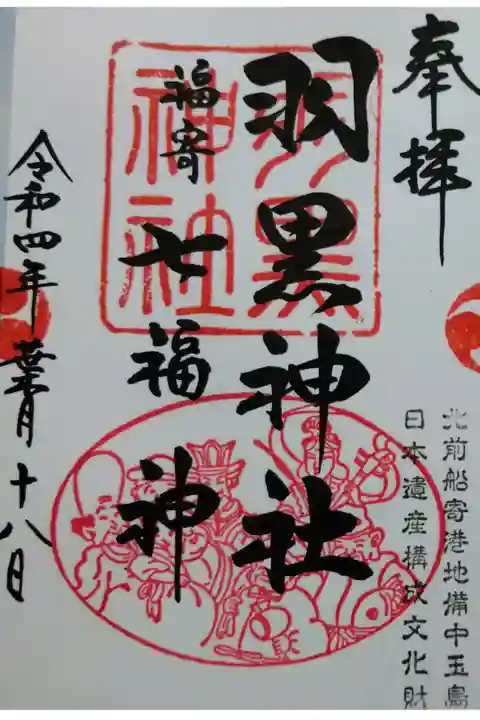 奉拝
羽黒神社
福寄
七福神
令和四年葉月十八日
羽黒
神社
北前船寄港地備中玉島
日本遺産構成文化財